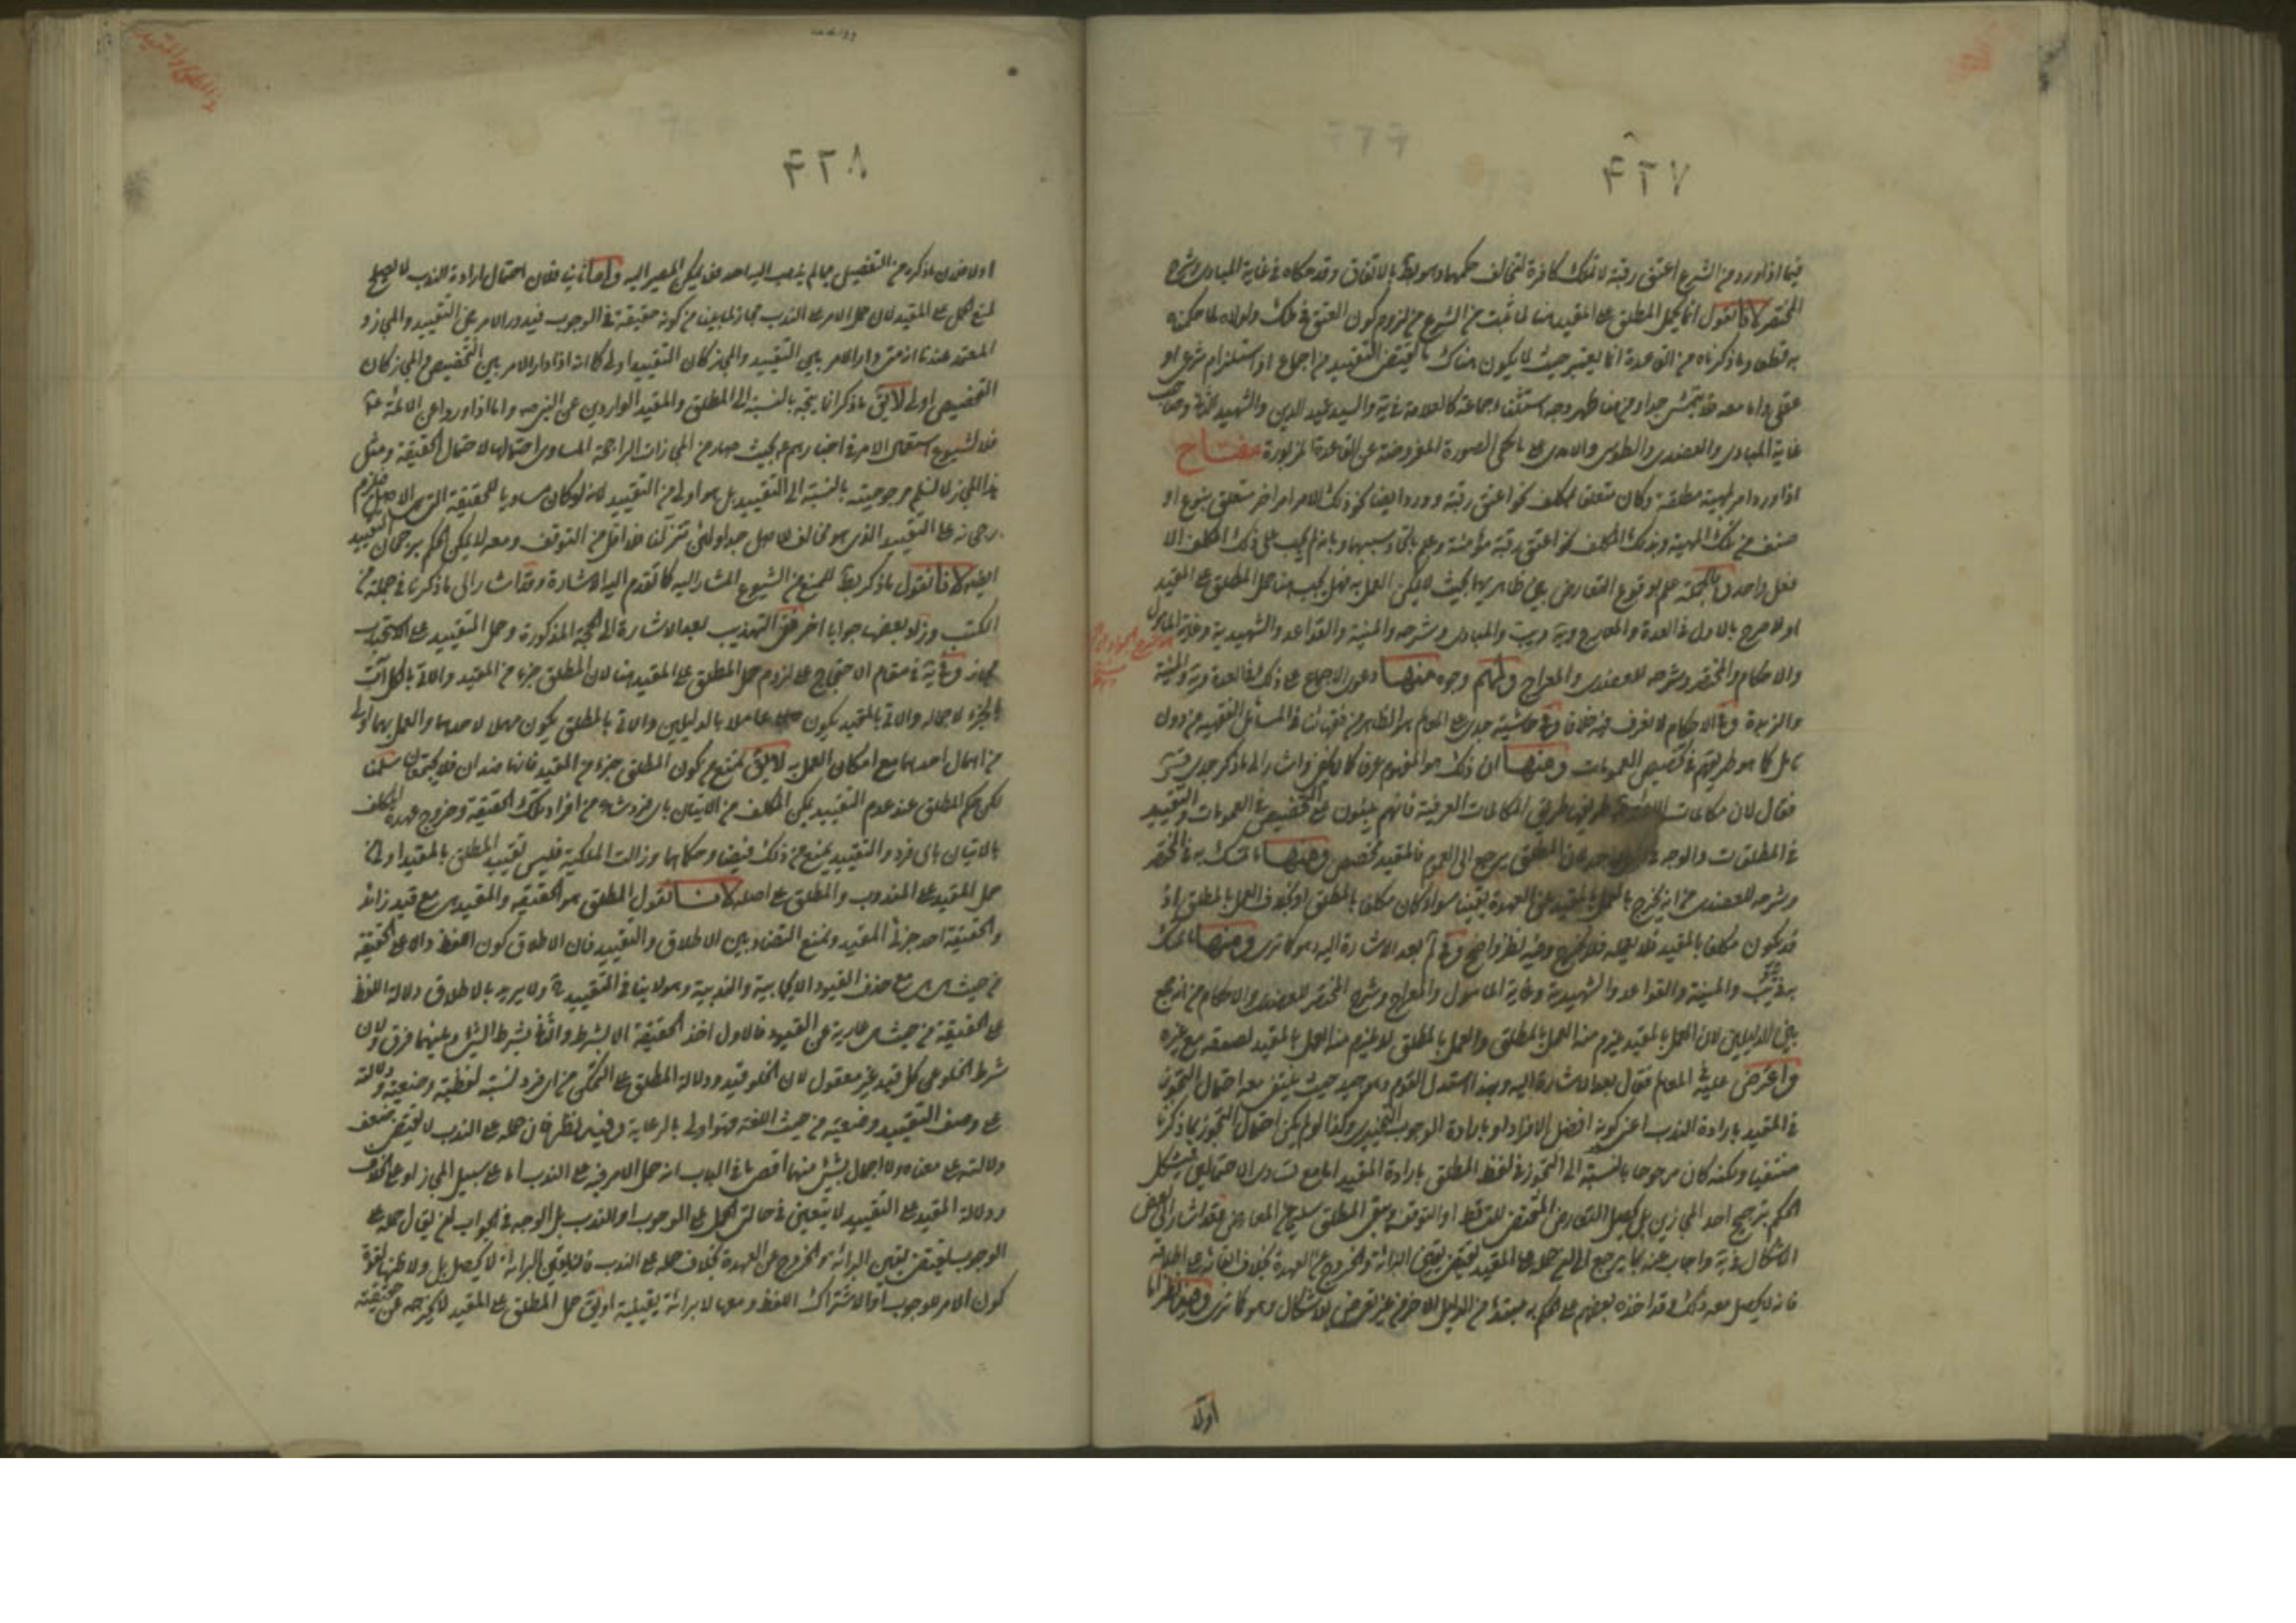 ٤٢٧
فيما اذا ورد من الشرع اعتق رقبة لا تملك كافرة لتخالف حكمهما وهو بط بالاتفاق وقد حكاه في غاية المبادى وشرح
المختصر لانا نقول انما يحمل المطلق على المقيد هنا لما ثبت من الشرع من لزوم كون العتق في ملك ولولاه لما حكمنا
به قطعا وما ذكرناه من القاعدة انما يعتبر حيث لا يكون هناك ما يقتضى التقييد من اجماع او استلزام شرعى او
عقلى واما معه فلا يتمشى جدا ومن هنا ظهر وجه استثناء جماعة كالعلامة في ية والسيد عميد الدين والشهيد الثانى وصاحب
غاية المبادى والعضدى والطوسى والامدى على ما حكى الصورة المفروضة عن القاعدة المزبورة مفتاح
اذا ورد امر بمهية مطلقة وكان متعلقا بمكلف نحو اعتق رقبة وورد ايضا نحو ذلك الامر امر اخر متعلق بنوع او
صنف من تلك المهية وبذلك المكلف نحو اعتق رقبة مؤمنة وعلم باتحاد سببهما وبانه لم يجب على ذلك المكلف الا
فعل واحد وبالجملة علم بوقوع التعارض بين ظاهريهما بحيث لا يمكن العمل به فهل يجب هنا حمل المطلق على المقيد
او لا صرح بالاول في العدة والمعارج وية ويب والمبادى وشرحه والمنية والقواعد والشهيدية وغاية المامول
والاحكام والمختصر وشرحه للعضدى والمعراج ولهم وجوه منها دعوى الاجماع على ذلك في العدة وية والمنية
والزبدة وفي الاحكام لا نعرف فيه خلافا وفي حاشية جدى على المعالم هو الظاهر من فقهائنا في المسائل الفقهية من دون
تامل كما هو طريقتهم في تخصيص العمومات ومنها ان ذلك هو المفهوم عرفا كما لا يخفى واشار الى ما ذكر جدى قدس سره
فقال لان مكالمات الائمة طريقها طريق المكالمات العرفية فانهم يبنون على التخصيص في العمومات والتقييد
في المطلقات والوجه فان المطلق يرجع الى العموم فالمقيد مخصص ومنها ما تمسك به في المختصر
وشرحه للعضدى من انه يخرج بالعمل بالمقيد عن العهدة يقينا سواء كان مكلفا بالمطلق او بخلاف العمل بالمطلق اذ
قد يكون مكلفا بالمقيد فلا يعلمه فلا يخرج وفيه نظر واضح وفي م بعد الاشارة اليه وهو كما ترى ومنها ما تمسك
به في يب والمنية والقواعد والشهيدية وغاية المامول والمعراج وشرح المختصر للعضدى والاحكام من انه جمع
بين الدليلين لان العمل بالمقيد يلزم منه العمل بالمطلق والعمل بالمطلق لا يلزم منه العمل بالمقيد لصدقه مع غيره
واعترض عليه في المعالم فقال بعد الاشارة اليه وبهذا استدل القوم وهو جيد حيث ينتفى معه احتمال التجوز
في المقيد بارادة الندب اعنى كونه افضل الافراد او بارادة الوجوب التخييرى وكذا لو لم يكن احتمال التجوز بما ذكرنا
منتفيا ولكنه كان مرجوحا بالنسبة الى التجوز في لفظ المطلق بارادة المقيد اما مع تساوى الاحتمالين فيشكل
الحكم بترجيح احد المجازين بل يحصل التعارض المقتضى للتساقط او التوقف ويبقى المطلق سليما عن المعارض فقد اشار الى بعض
الاشكال في ية واجاب عنه بما يرجع الى ان حمله على المقيد يقتضى يقين البراءة والخروج عن العهدة بخلاف ابقائه على اطلاقه
فانه لا يحصل معه ذلك وقد اخذه بعضهم على الحكم به مبتدئا من الدليل الاخر من غير تعرض للاشكال وهو كما ترى وفيه نظر اما
اولا
في المطلق والمقيد
٤٢٨
اولا فلان ما ذكره من التفصيل مما لم يذهب اليه احد فلا يمكن المصير اليه واما ثانيا فلان احتمال ارادة الندب لا يصلح
لمنع الحمل على المقيد لان حمل الامر على الندب مجاز لما بيناه من كونه حقيقة في الوجوب فيدور الامر بين التقييد والمجاز و
المعتمد عندنا انه متى دار الامر بين التقييد والمجاز كان التقييد اولى كما انه اذا دار الامر بين التخصيص والمجاز كان
التخصيص اولى لا يق ما ذكر انما يتجه بالنسبة الى المطلق والمقيد الواردين عن النبى ص واما اذا وردا عن الائمة ع
فلا لشيوع استعمال الامر في اخبارهم ع بحيث صار من المجازات الراجحة المساوى احتمالها لاحتمال الحقيقة ومثل
هذا المجاز لا نسلم مرجوحيته بالنسبة الى التقييد بل هو اولى من التقييد لانه لو كان مساويا للحقيقة التى هى الاصل فيلزم
رجحانه على التقييد الذى هو مخالف للاصل جدا ولئن تنزلنا فلا اقل من التوقف ومعه لا يمكن الحكم برجحان التقييد
ايضا لانا نقول ما ذكر بط للمنع من الشيوع المشار اليه كما تقدم اليه الاشارة وقد اشار الى ما ذكرنا في جملة من
الكتب وزاد بعضها جوابا اخر ففي التهذيب بعد الاشارة الى الحجة المذكورة وحمل التقييد على الاستحباب
مجاز وفي ية في مقام الاحتجاج على لزوم حمل المطلق على المقيد هنا لان المطلق جزء من المقيد والاتى بالكل آت
بالجزء لا محالة والاتى بالمقيد يكون عاملا بالدليلين والاتى بالمطلق يكون مهملا لاحدهما والعمل بهما اولى
من اهمال احدهما مع امكان العمل به لا يق نمنع كون المطلق جزء من المقيد فانهما ضدان فلا يجتمعان سلمنا
لكن حكم المطلق عند عدم التقييد يمكن المكلف من الاتيان باى فرد شاء من افراد تلك الحقيقة وخروج عهدة المكلف
بالاتيان باى فرد والتقييد يمنع من ذلك فيتضاد حكماهما وزالت الملكية فليس تقييد المطلق بالمقيد اولى من
حمل المقيد على المندوب والمطلق على اصله لانا نقول المطلق هو الحقيقة والمقيد هى مع قيد زائد
والحقيقة احد جزئى المقيد ونمنع التضاد بين الاطلاق والتقييد فان الاطلاق كون اللفظ دالا على الحقيقة
من حيث هى هى مع حذف القيود الايجابية والسلبية وهو لا ينافى التقييد ولا يريد بالاطلاق دلالة اللفظ
على الحقيقة من حيث هى عارية عن القيود فالاول اخذ الحقيقة لا بشرط والثانى بشرط لا شىء وبينهما فرق ولان
شرط الخلو عن كل قيد غير معقول لان الخلو قيد ودلالة المطلق على التمكن من اى فرد ليست لفظية وضعية ودلالته
على وصف التقييد وضعية من حيث اللغة فهو اولى بالرعاية وفيه نظر فان حمله على الندب لا يقتضى ضعف
دلالته على معناه ولا اهمال بشىء منهما اقصى ما في الباب انه حمل الامر فيه على الندب اما على سبيل المجاز او على الخلاف
ودلالة المقيد على التقييد لا يتعين في حالتى الحمل على الوجوب او الندب بل الوجه في الجواب ان يقال حمله على
الوجوب يقتضى يقين البراءة والخروج عن العهدة بخلاف حمله على الندب فان يقين البراءة لا يحصل بل ولا ظنها لقوة
كون الامر للوجوب او الاشتراك اللفظى ومعها لا براءة يقينية او يق حمل المطلق على المقيد لا يخرجه عن حقيقته